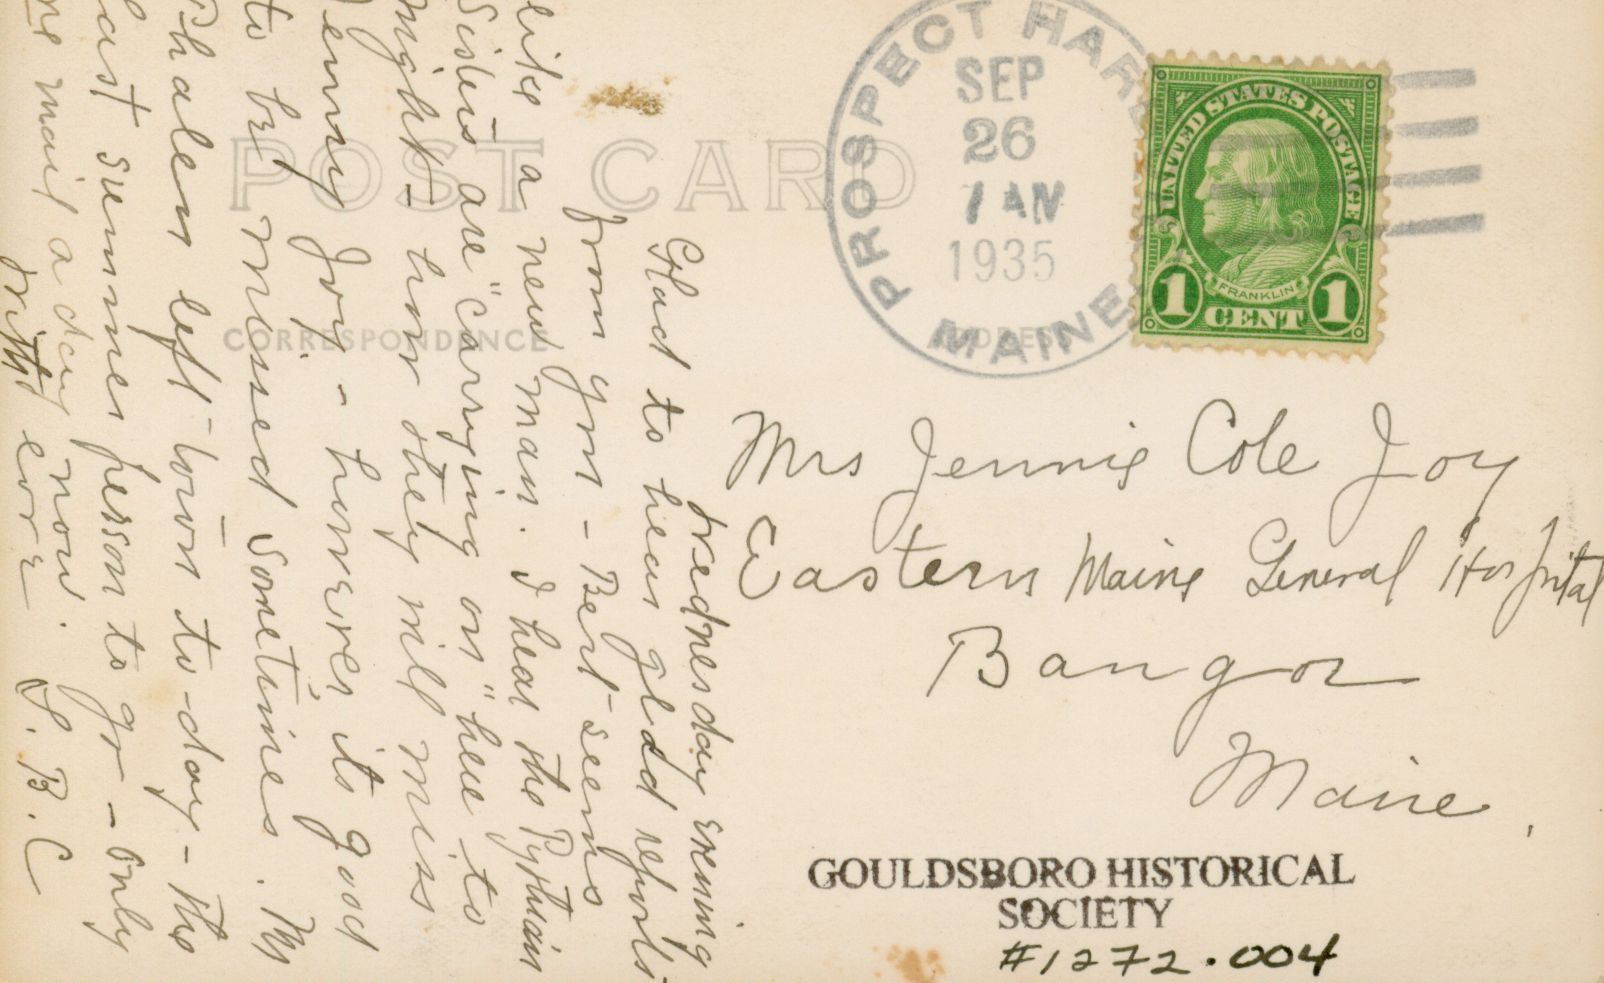 POST CARD
CORRESPONDENCE
ADDRESS
PROSPECT HARB
MAINE
SEP
26
7 AM
1935
UNITED STATES POSTAGE
FRANKLIN
1 CENT 1
Mrs Jennie Cole Joy
Eastern Maine General Hospital
Bangor
Maine.
GOULDSBORO HISTORICAL
SOCIETY
#1272.004
Wednesday Evening
Glad to hear glad reports
from you - Bert seems
like a new man. I hear the Pythian
Sisters are "carrying on" here to
might - how they will miss
Jenny Joy - however, it's good
to be missed sometimes. Mr
Phalem left town to-day - the
last summer person to go - only
one mail a day now.
With love L. B. C